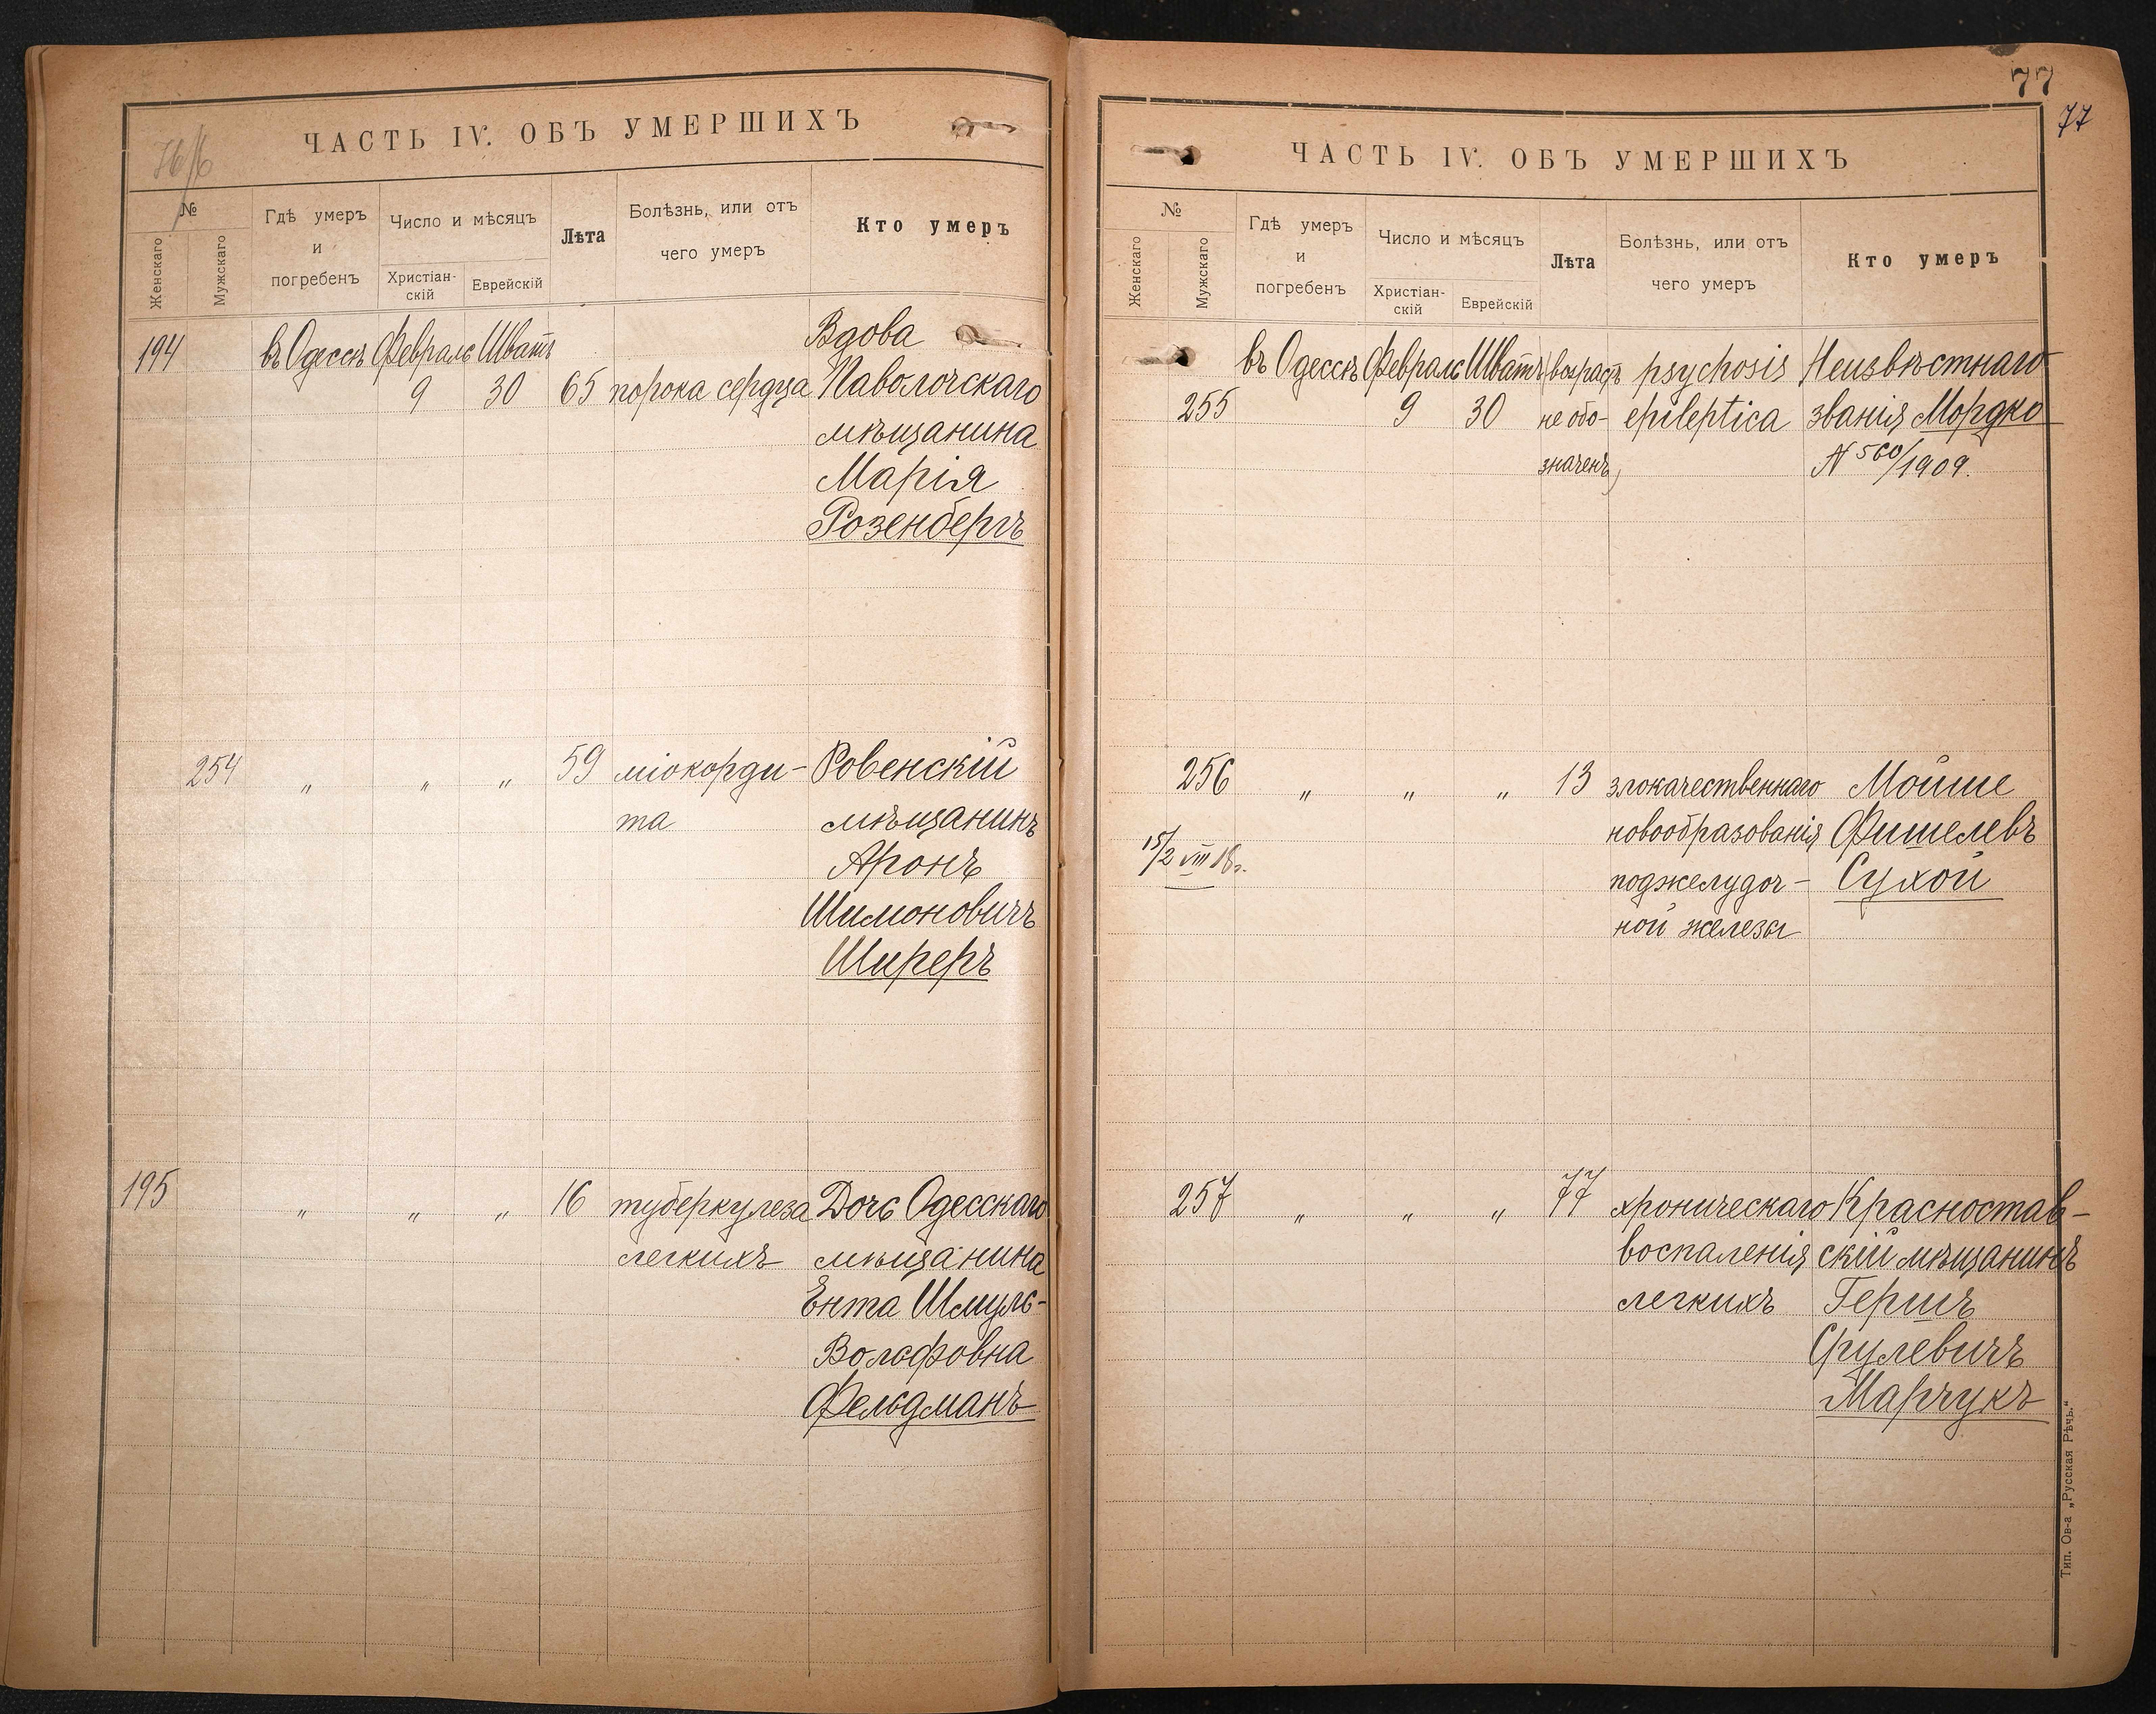 76/б
ЧАСТЬ IV. ОБЪ УМЕРШИХЪ
№
Женскаго
Мужскаго
Гдѣ умеръ
и
погребенъ
Число и мѣсяцъ
Христіан-
скій
Еврейскій
Лѣта
Болѣзнь, или отъ
чего умеръ
Кто умеръ
194 въ Одессѣ Февраль Шватъ Вдова
9 30 65 порока сердца Паволочскаго
мѣщанина
Марія
Розенбергъ
254 „ „ „ 59 міокорди- Ровенскій
та мѣщанинъ
Аронъ
Шимоновичъ
Ширеръ
195 „ „ „ 16 туберкулеза Дочь Одесскаго
легкихъ мѣщанина
Ента Шмуль-
Вольфовна
Фельдманъ
77
77
ЧАСТЬ IV. ОБЪ УМЕРШИХЪ
№
Женскаго
Мужскаго
Гдѣ умеръ
и
погребенъ
Число и мѣсяцъ
Христіан-
скій
Еврейскій
Лѣта
Болѣзнь, или отъ
чего умеръ
Кто умеръ
въ Одессѣ Февраль Шватъ (возрастъ psychosis Неизвѣстнаго
255 9 30 не обо- epileptica званія Мордко
значенъ) N 560/1909.
256 „ „ „ 13 злокачественнаго Мойше
новообразованія Фишелевъ
15/2 VIII 18г. поджелудоч- Сухой
ной железы
257 „ „ „ 77 хроническаго Красностав-
воспаленія скій мѣщанинъ
легкихъ Гершъ
Срулевичъ
Марчукъ
Тип. Ов-а „Русская Рѣчь.“